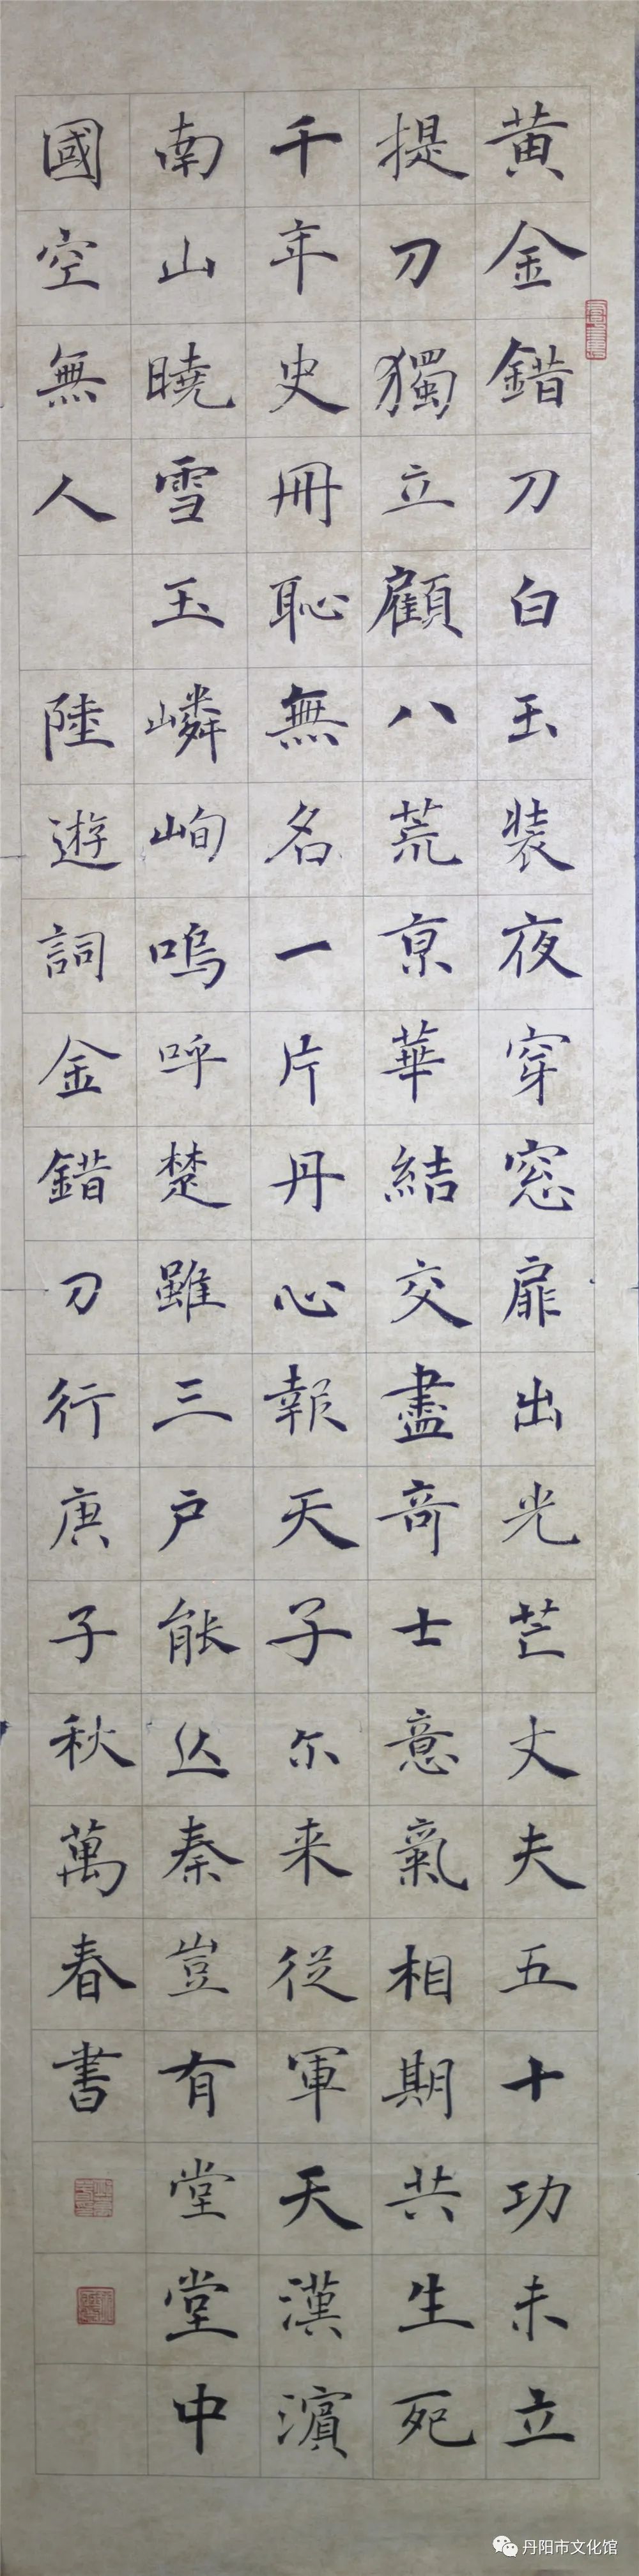 黄金錯刀白玉装夜穿窓扉出光芒丈夫五十功未立
提刀獨立顧八荒京華結交盡竒士意氣相期共生死
千年史冊恥無名一片丹心報天子尓来從軍天漢濱
南山曉雪玉嶙峋嗚呼楚雖三户能亾秦豈有堂堂中
國空無人 陸遊詞金錯刀行庚子秋萬春書
丹阳市文化馆